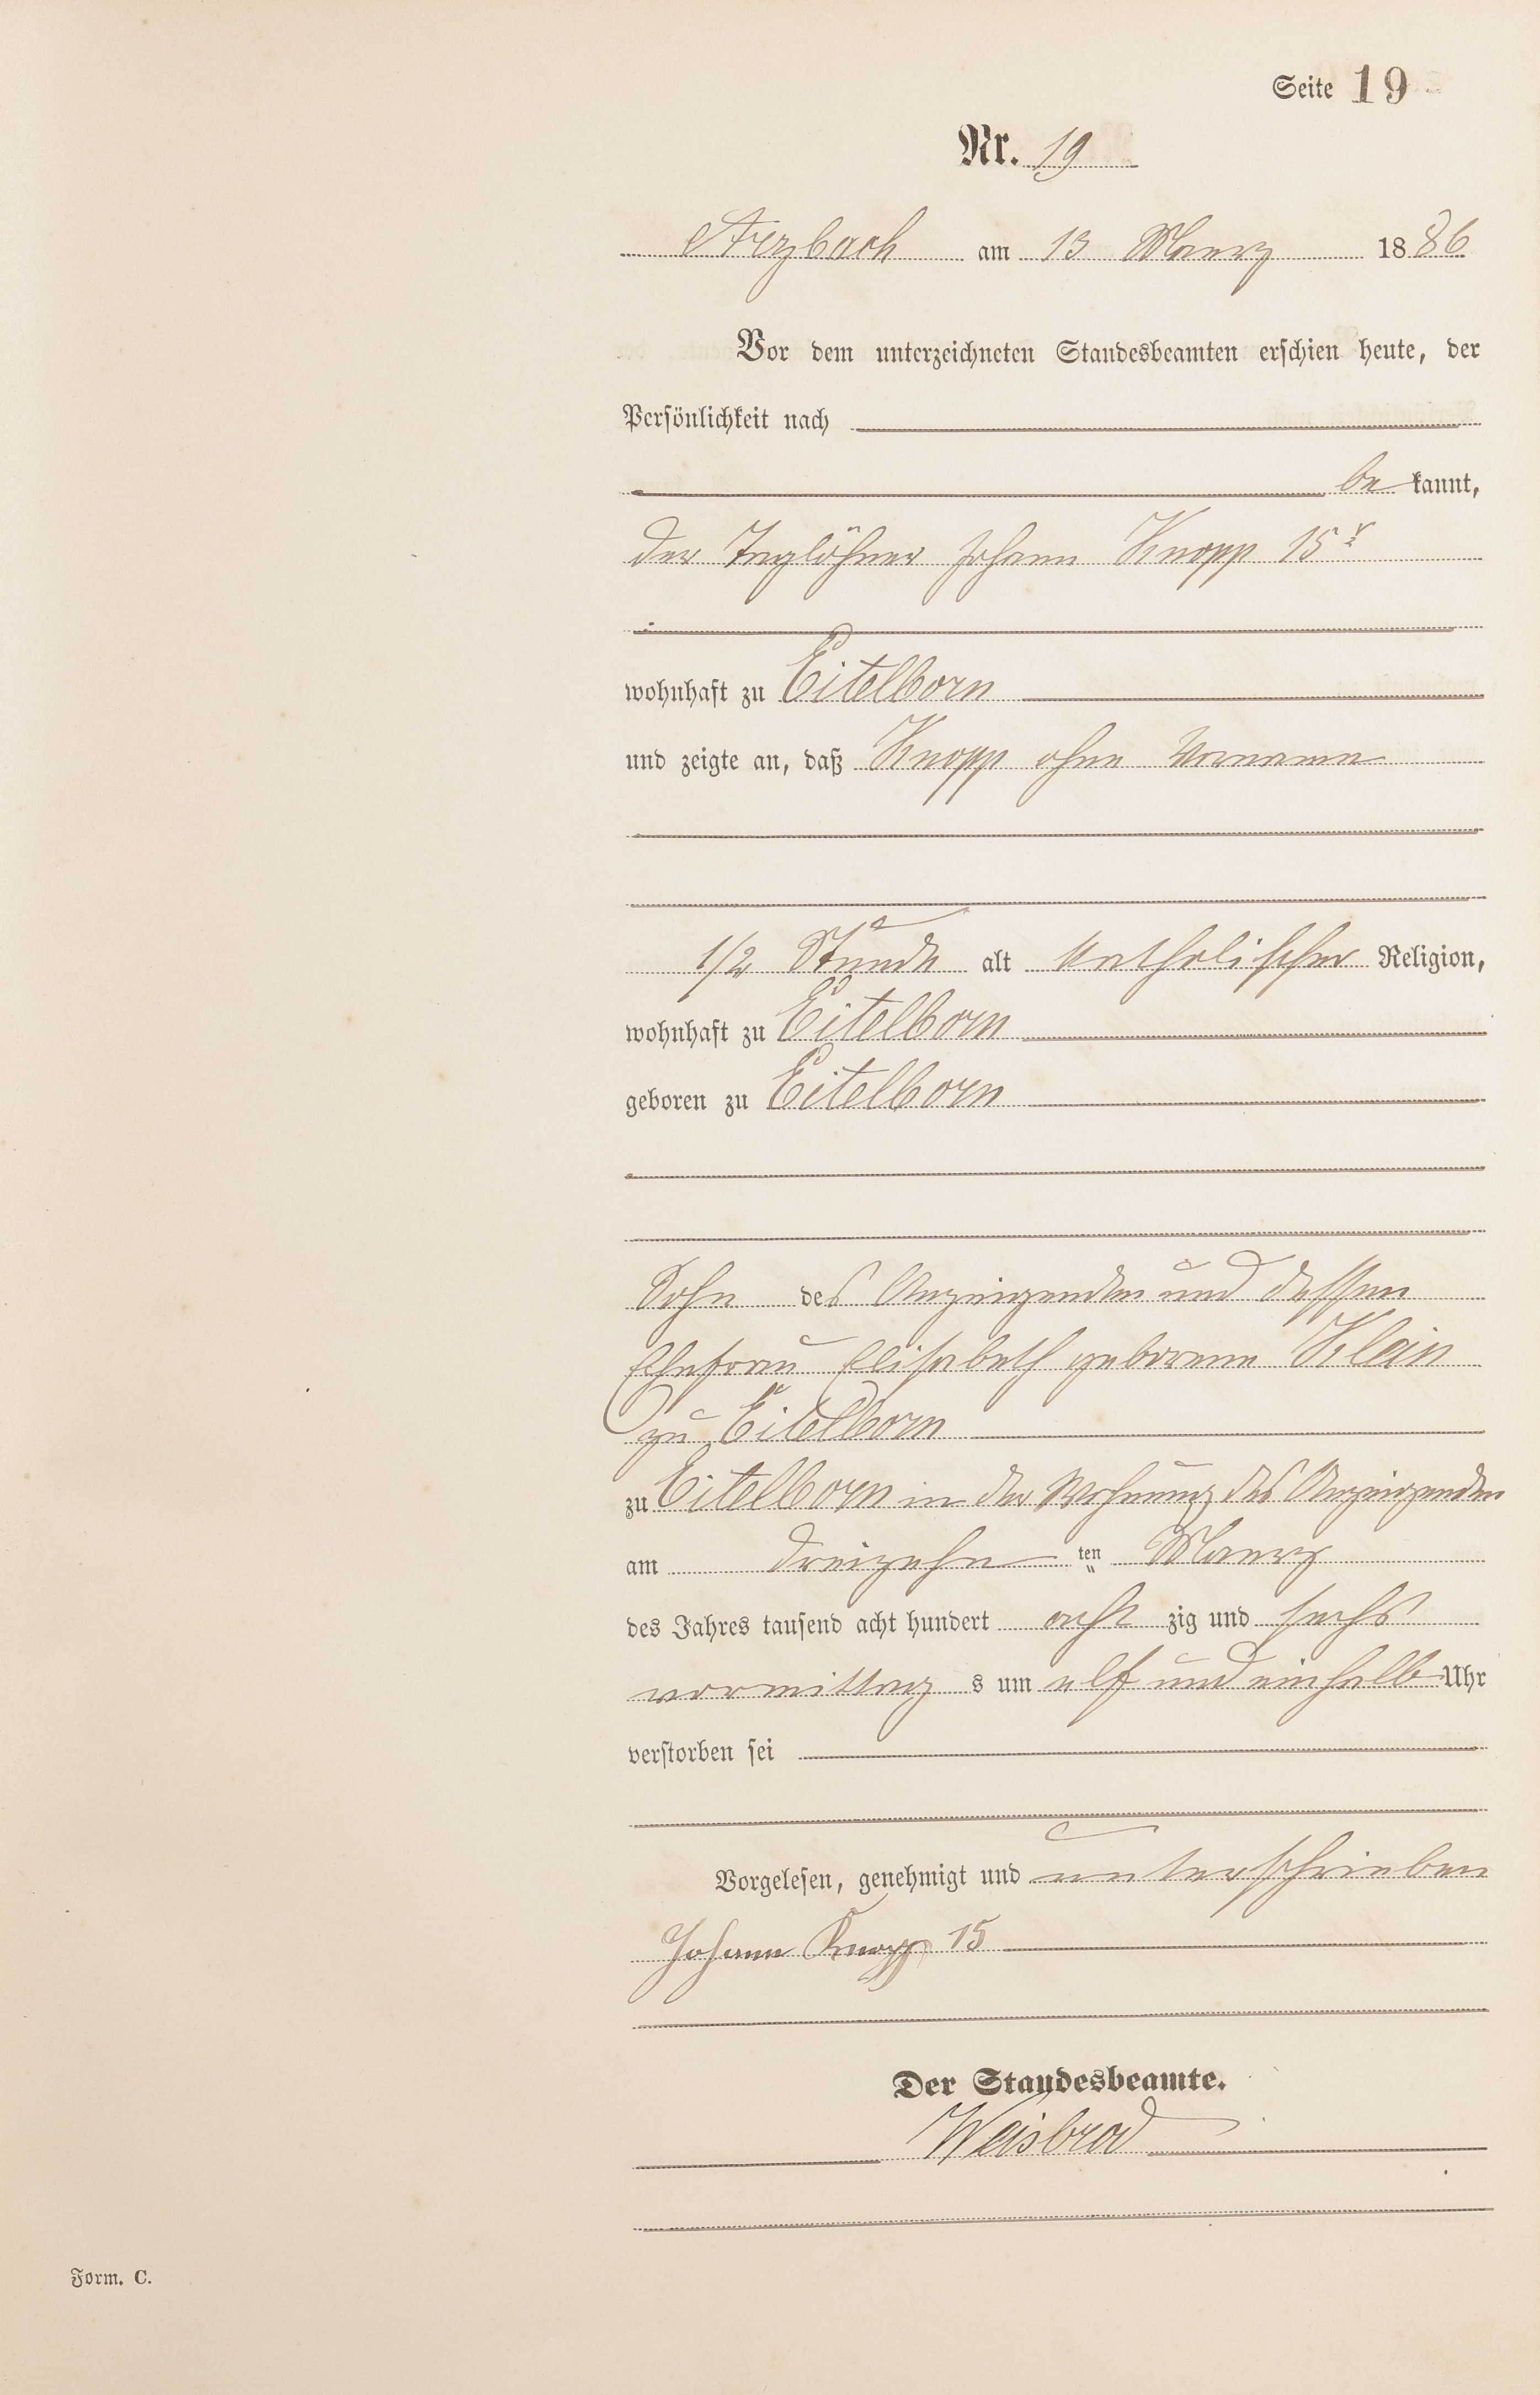 Seite 19
Nr. 19
Arzbach am 13 Maerz 1886
Vor dem unterzeichneten Standesbeamten erschien heute, der
Persönlichkeit nach
be kannt,
der Taglöhner Johann Knopp 15r
wohnhaft zu Eitelborn
und zeigte an, daß Knopp ohne Vorname
1/2 Stunde alt katholischer Religion,
wohnhaft zu Eitelborn
geboren zu Eitelborn
Sohn des Anzeigenden und dessen
Ehefrau Elisabeth geborene Klein
zu Eitelborn
zu Eitelborn in der Wohnung des Anzeigenden
am dreizehn ten Maerz
des Jahres tausend acht hundert acht zig und sechs
vormittag s um elf und einhalb Uhr
verstorben sei
Vorgelesen, genehmigt und unterschrieben
Johann Knopp 15
Der Standesbeamte.
Weisbrod
Form. C.